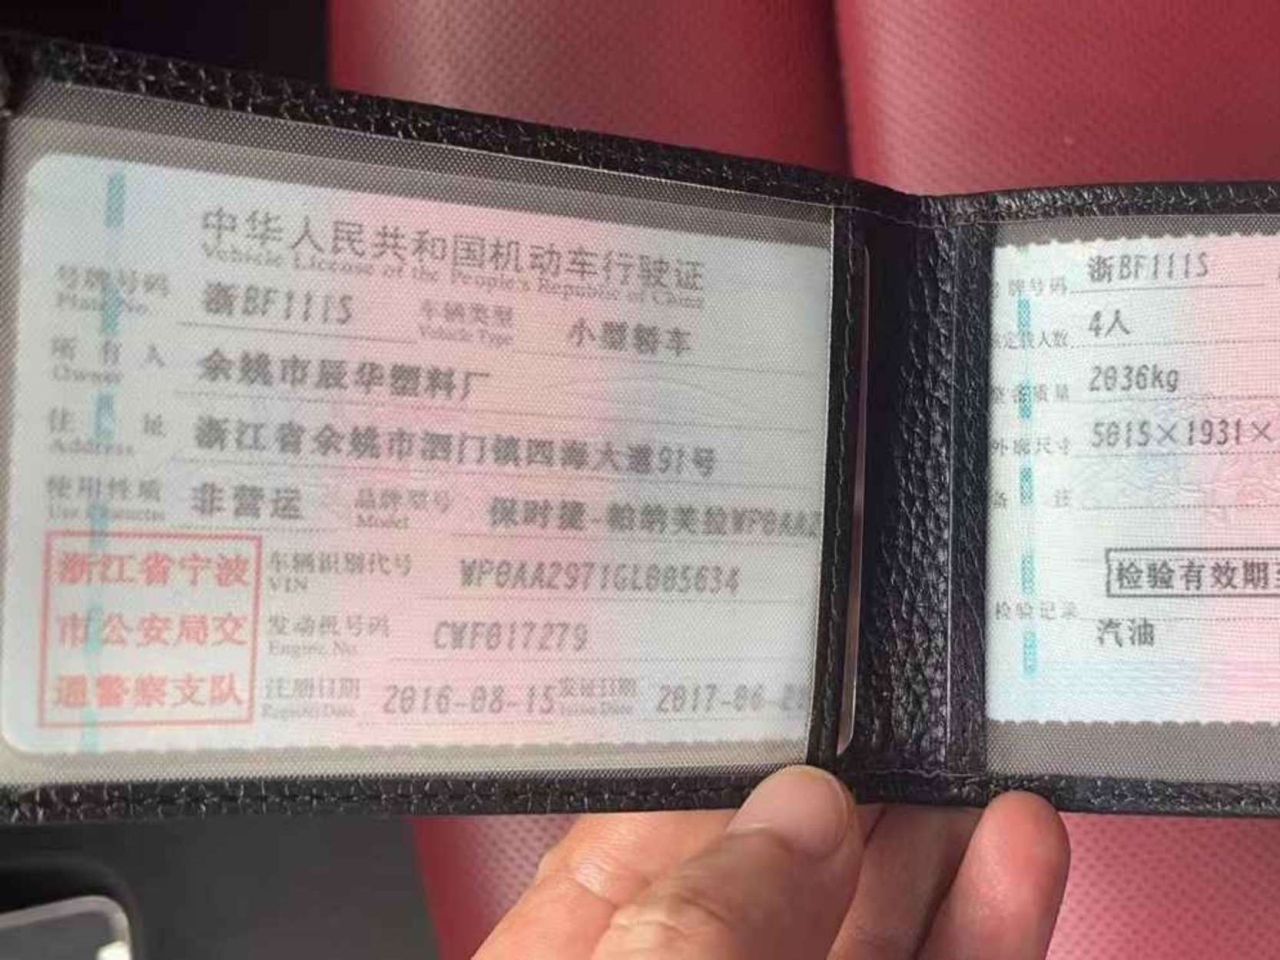 中华人民共和国机动车行驶证
Vehicle License of the People's Republic of China
号牌号码 浙BF111S 车辆类型 小型轿车
Plate No. Vehicle Type
所有人 余姚市辰华塑料厂
Owner
住址 浙江省余姚市泗门镇四海大道91号
Address
使用性质 非营运 品牌型号 保时捷-帕纳美拉WP0AA2
Use Character Model
浙江省宁波
市公安局交
通警察支队
车辆识别代号 WP0AA2971GL005634
VIN
发动机号码 CWF017279
Engine No.
注册日期 2016-08-15 发证日期 2017-06-
Register Date Issue Date
号牌号码 浙BF111S
定载人数 4人
整备质量 2036kg
外廓尺寸 5015×1931×
备注
检验有效期至
检验记录
汽油